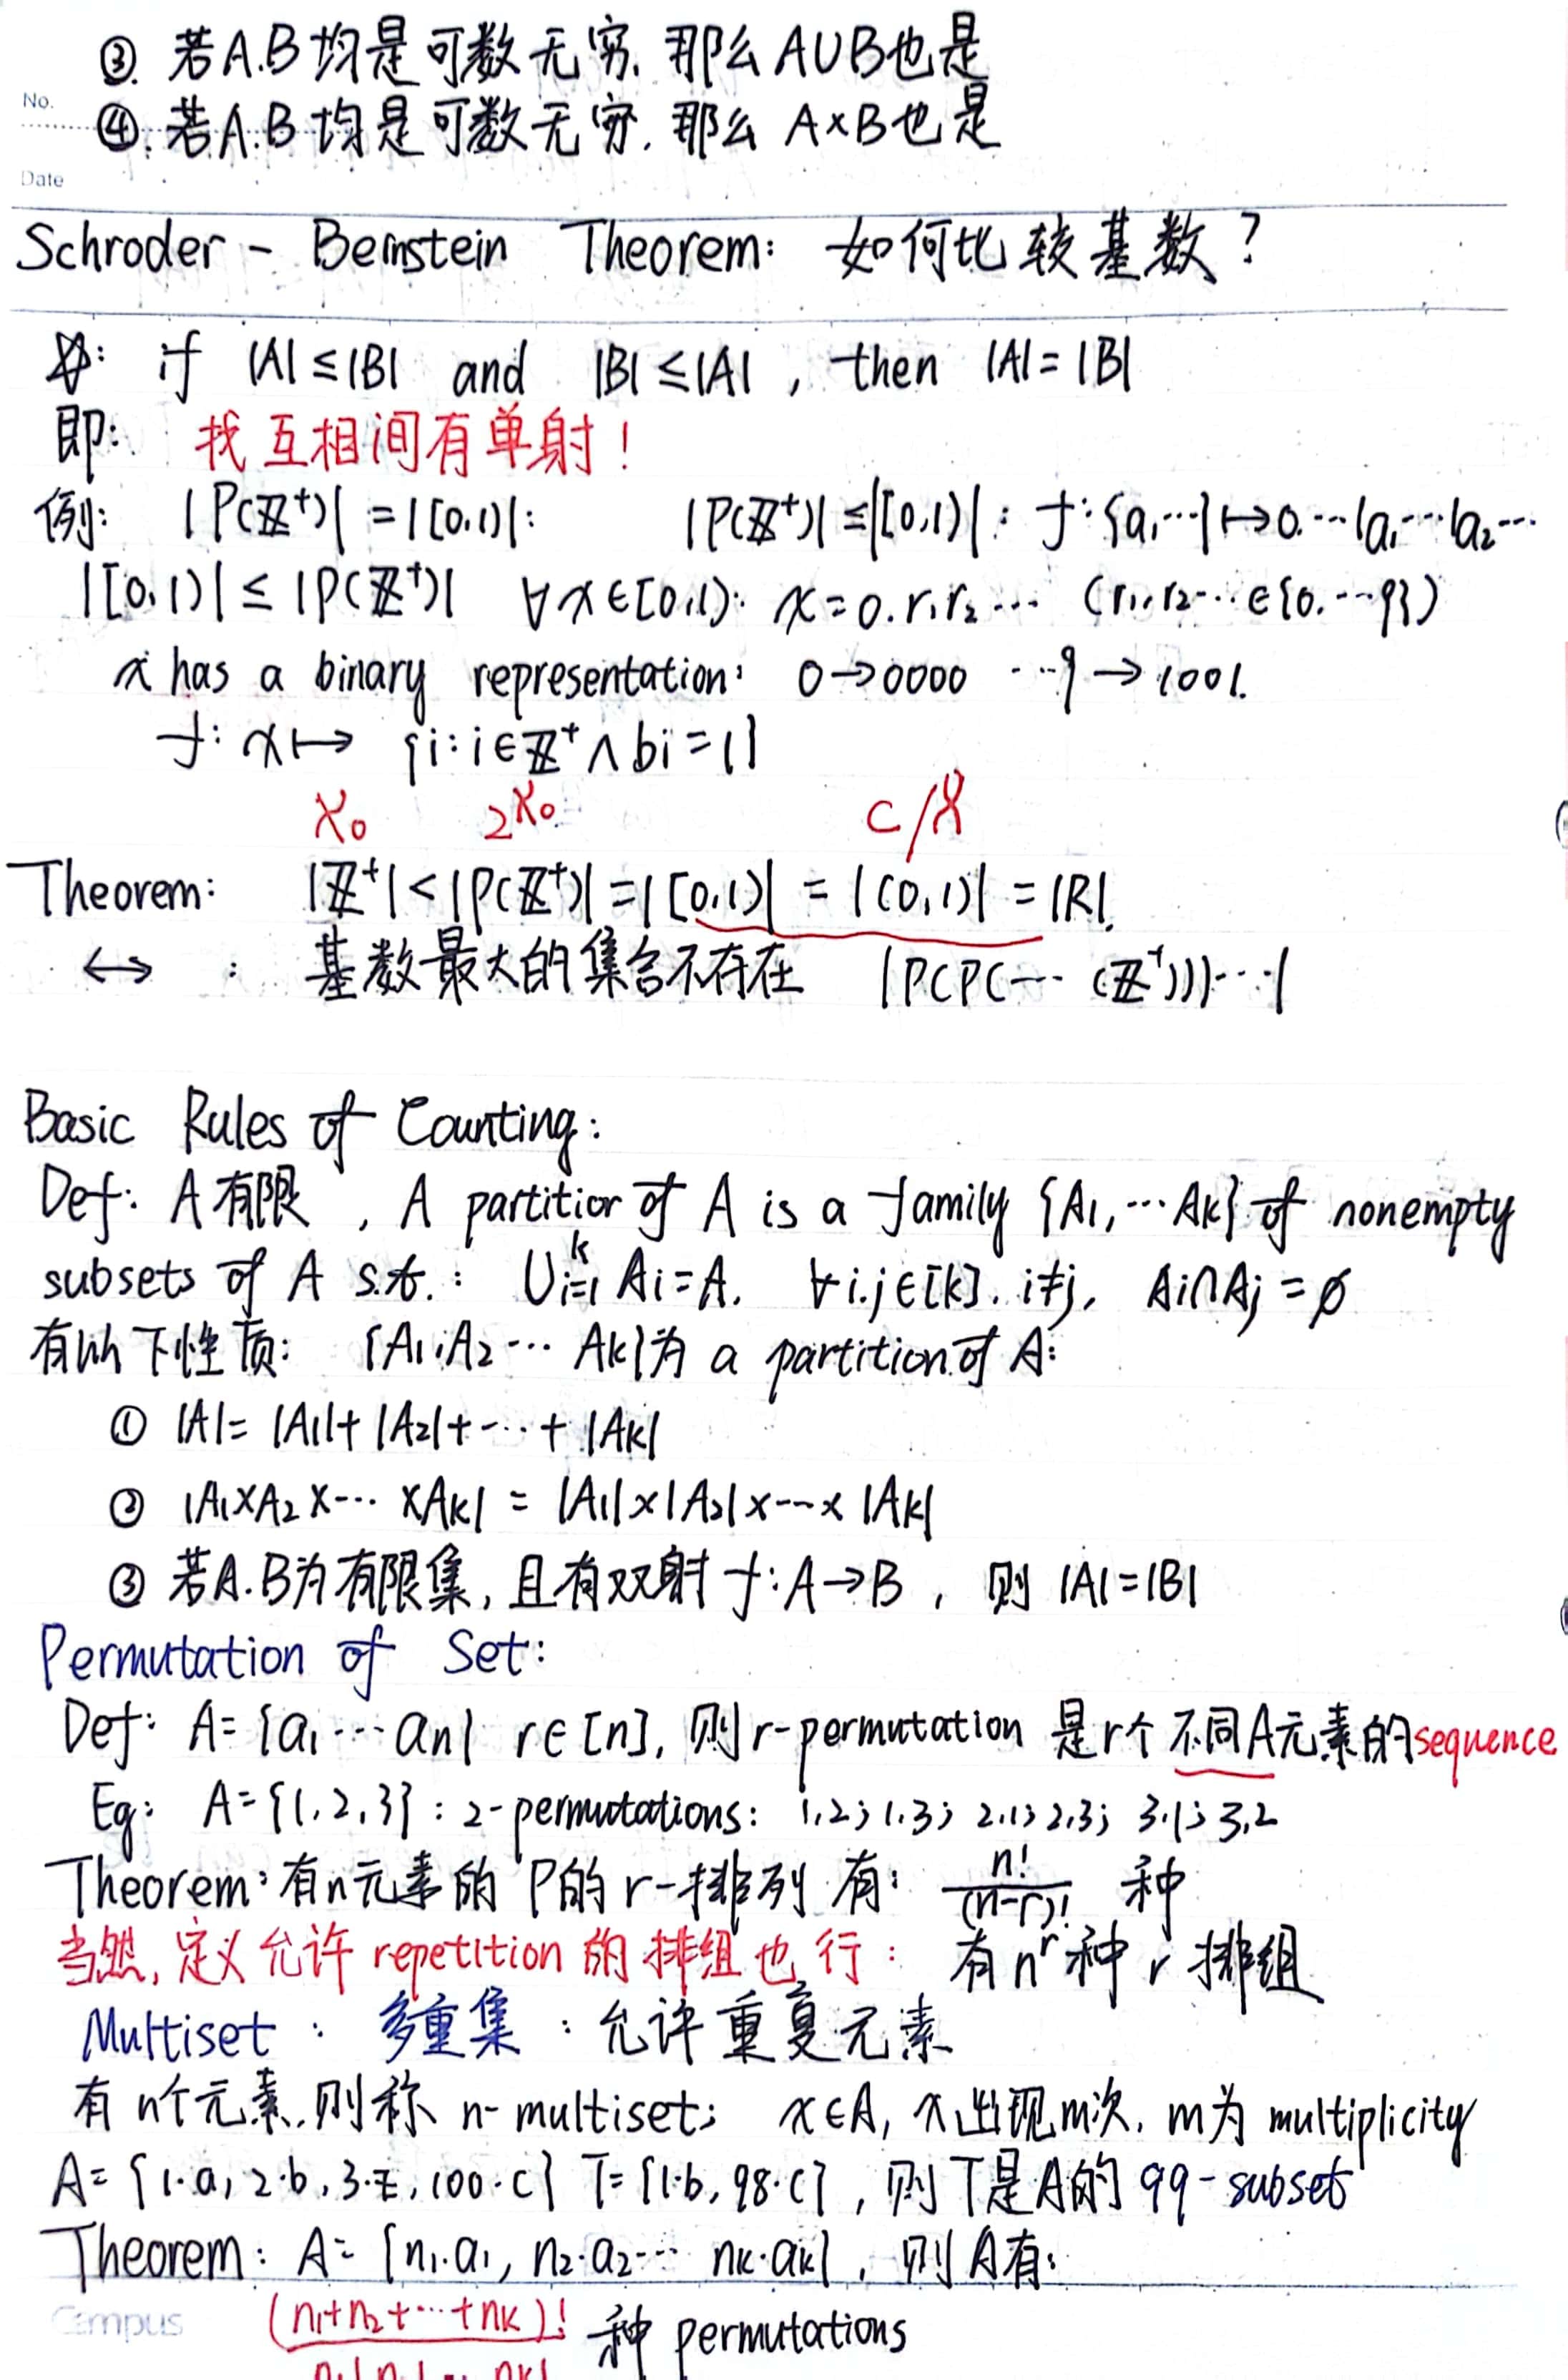 ③. 若A.B均是可数无穷. 那么A∪B也是
No.
④. 若A.B均是可数无穷. 那么 A×B也是
Date
Schroder - Bernstein Theorem: 如何比较基数?
☆: if |A|≤|B| and |B|≤|A|, then |A|=|B|
即: 找互相间有单射!
例: |P(Z⁺)|=|[0,1)|: |P(Z⁺)|≤|[0,1)|: f:{a₁···}↦0.···1a₁···1a₂···
|[0,1)|≤|P(Z⁺)| ∀x∈[0,1): x=0.r₁r₂··· (r₁,r₂···∈{0.···9})
x has a binary representation: 0→0000 ···9→1001.
f: x↦ {i:i∈Z⁺∧bi=1}
ℵ₀ 2^ℵ₀ c/ℵ
Theorem: |Z⁺|<|P(Z⁺)|=|[0,1)|=|(0,1)|=|R|.
↔ : 基数最大的集合不存在 |P(P(···(Z⁺)))···|
Basic Rules of Counting:
Def: A有限, A partition of A is a family {A₁,···Ak} of nonempty
subsets of A s.t.: ∪ᵢ₌₁ᵏ Ai=A. ∀i.j∈[k]. i≠j, Ai∩Aj=∅
有以下性质: {A₁,A₂··· Ak}为 a partition of A:
① |A|=|A₁|+|A₂|+···+|Ak|
② |A₁×A₂×···×Ak|=|A₁|×|A₂|×···×|Ak|
③ 若A.B为有限集, 且有双射 f:A→B, 则 |A|=|B|
Permutation of Set:
Def: A={a₁···an} r∈[n], 则r-permutation 是r个不同A元素的sequence
Eg: A={1,2,3}: 2-permutations: 1,2; 1,3; 2,1; 2,3; 3,1; 3,2
Theorem: 有n元素的 P的 r-排列 有: n!/(n-r)! 种
当然, 定义允许 repetition 的排组也行: 有nʳ种 r 排组
Multiset: 多重集: 允许重复元素
有 n个元素, 则称 n-multiset; x∈A, x出现m次, m为 multiplicity
A={1·a, 2·b, 3·z, 100·c} T={1·b, 98·c}, 则T是A的 99-subset
Theorem: A={n₁·a₁, n₂·a₂··· nk·ak}, 则A有:
Campus (n₁+n₂+···+nk)!/n₁!n₂!··· nk! 种 permutations